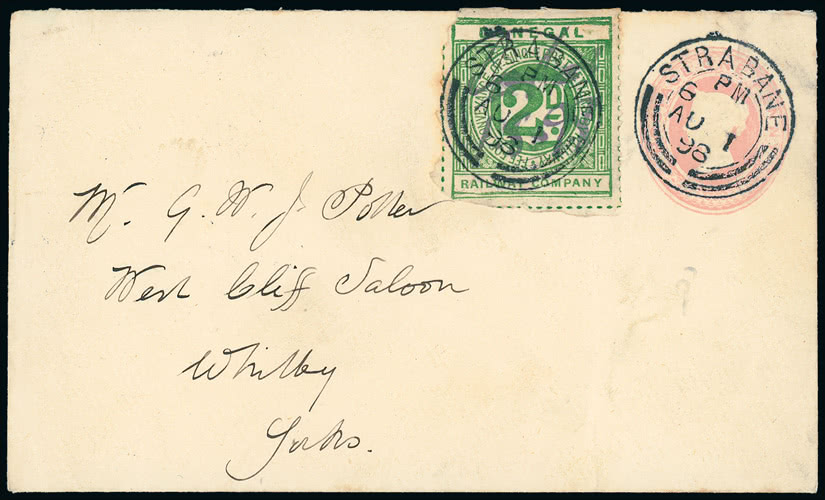 DONEGAL
2D
RAILWAY COMPANY
STRABANE
6 PM
AU 1
98
STRABANE
6 PM
AU 1
98
Mr. G. W. J. Potter
West Cliff Saloon
Whitby
Yorks.